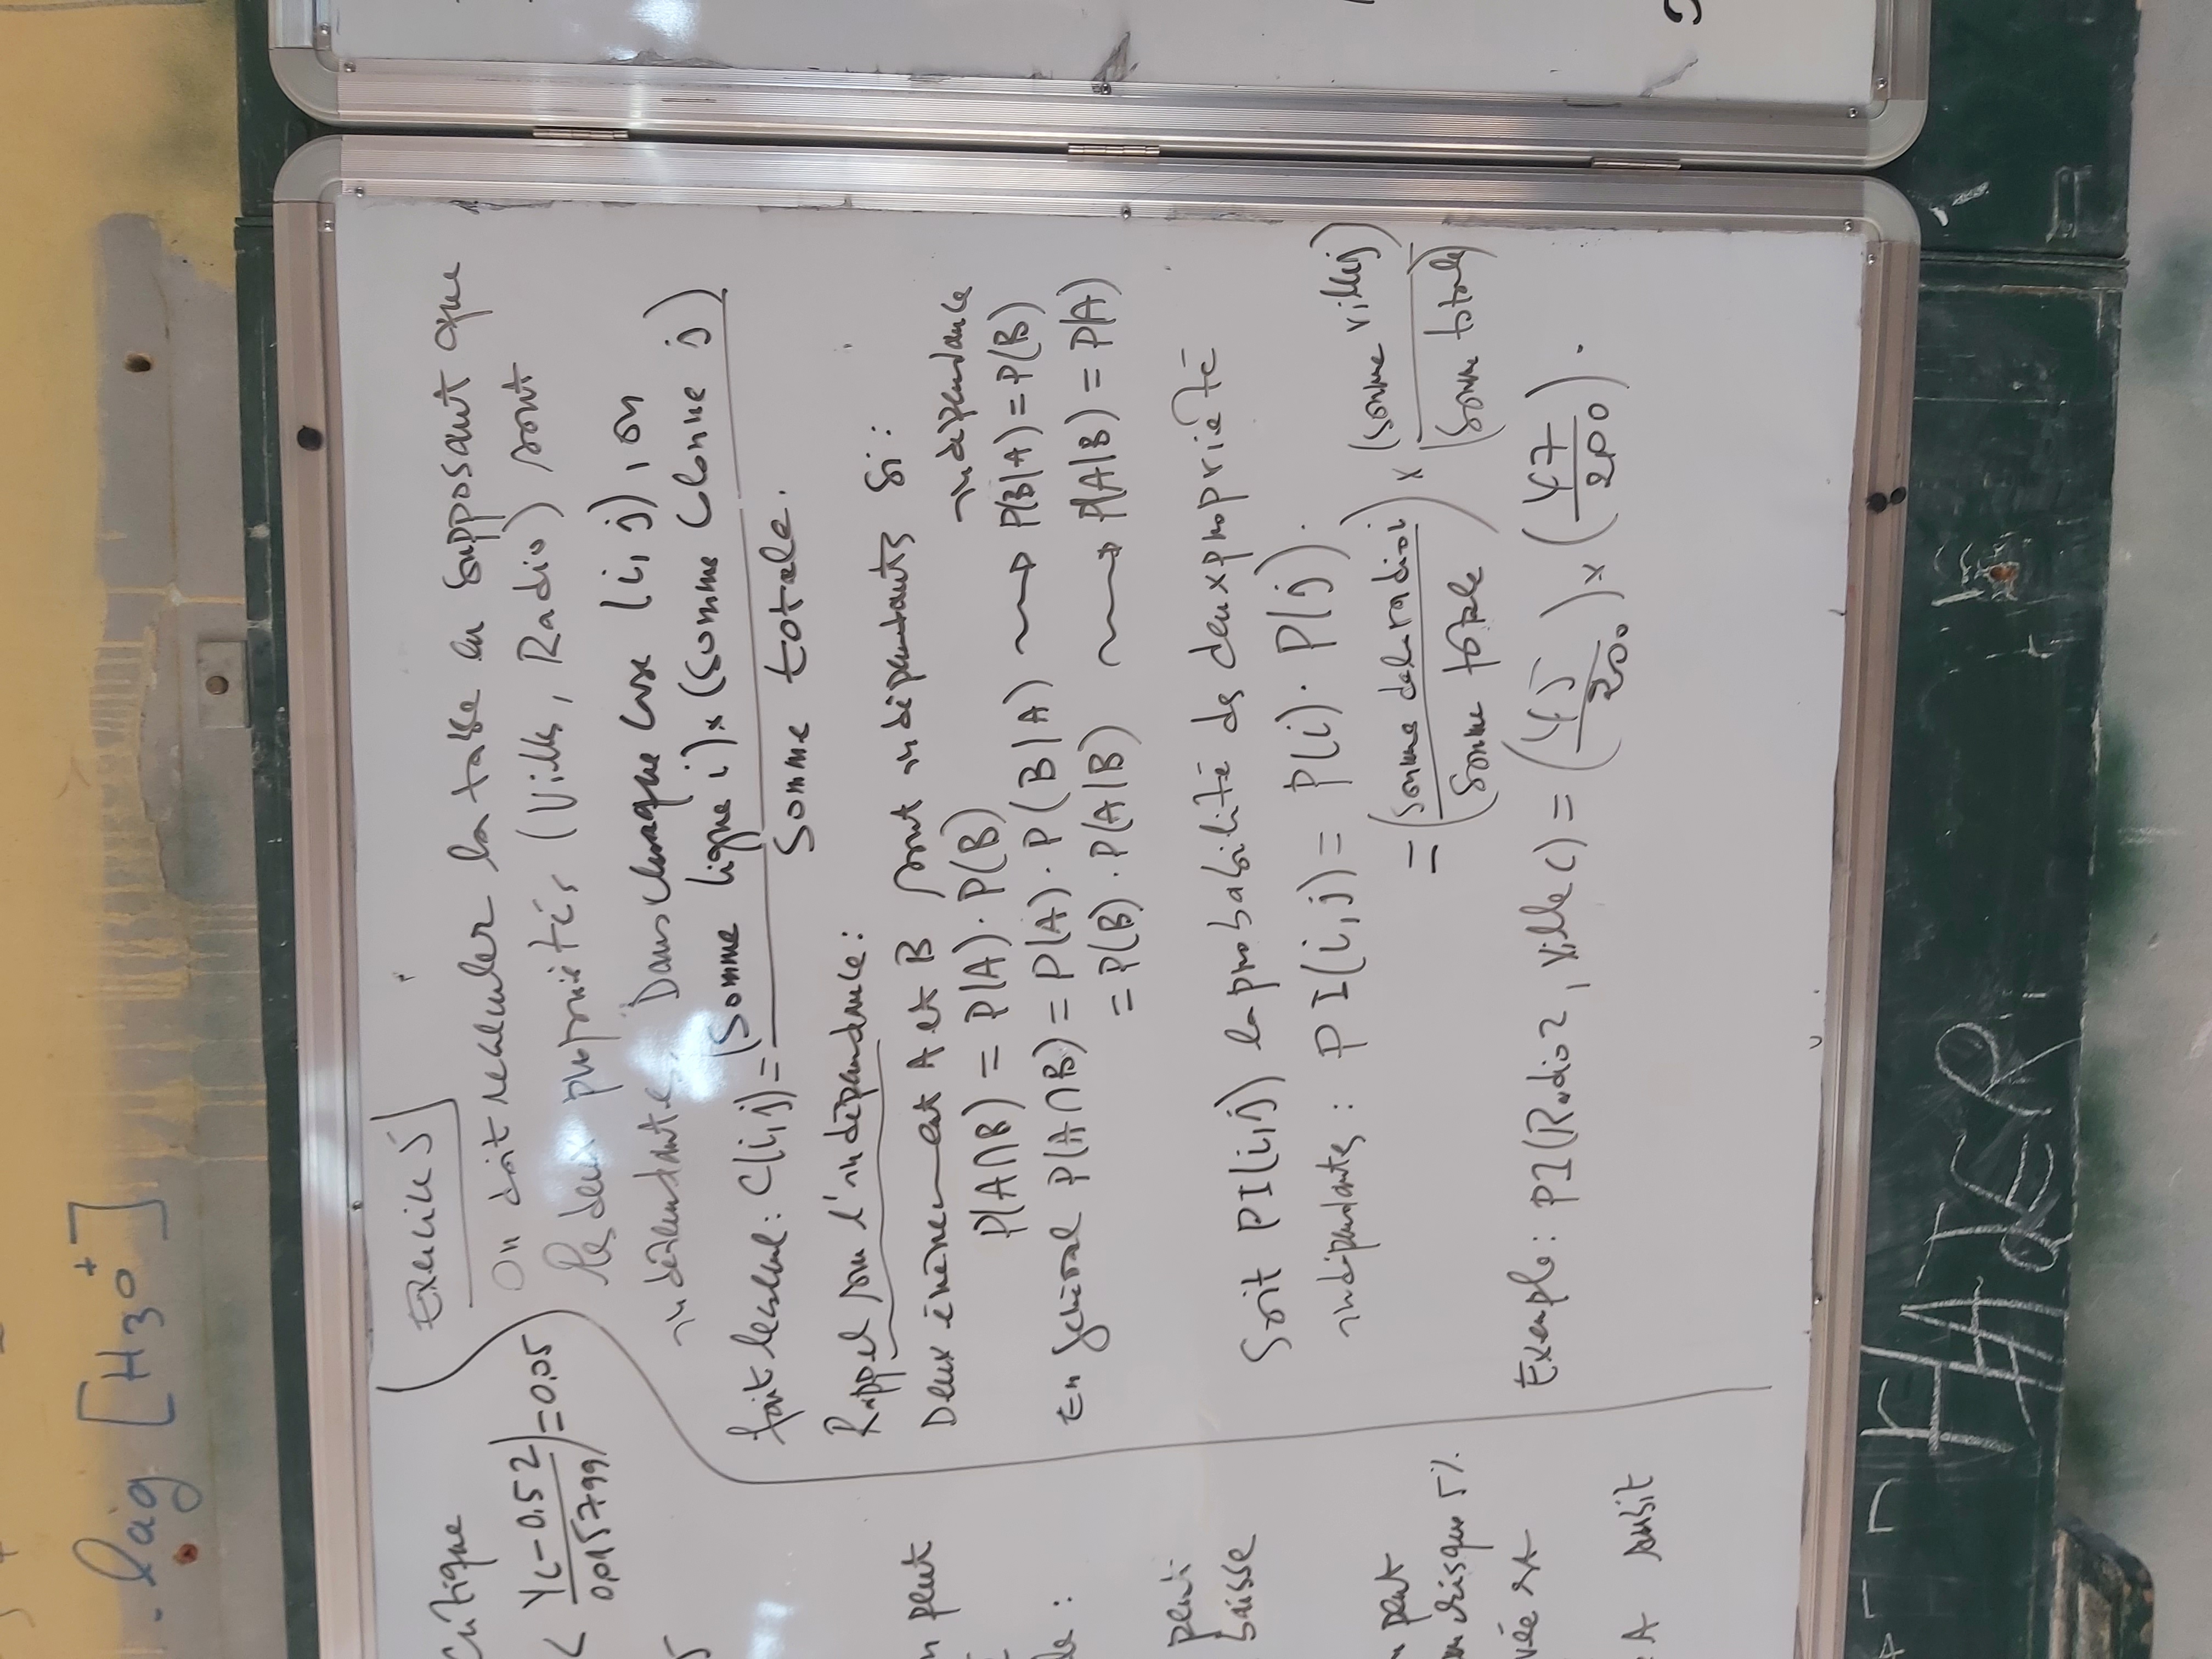 . lag [H3O+]
Critique
< Yc-0,52 / 0,015799) = 0,05
n peut
peut
baisse
n peut
risque 5%
A subit
Exercice 5
On doit recalculer la table en supposant que
les deux propriétés (Villes, Radio) sont
indépendantes. Dans chaque case (i, j), on
fait le calcul : C(i,j) = (Somme ligne i) x (Somme Colonne j) / Somme totale.
Rappel sur l'indépendance :
Deux événement A et B sont indépendants si :
P(A∩B) = P(A) · P(B)
indépendance
En général P(A∩B) = P(A) · P(B|A) ⟿ P(B|A) = P(B)
= P(B) · P(A|B) ⟿ P(A|B) = P(A)
Soit PI(i,j) la probabilité de deux propriété
indépendantes : PI(i,j) = P(i) · P(j).
= (Somme de la radio i / Somme totale) x (Somme ville j) / (Somme totale)
Exemple : PI(Radio 2, Ville C) = (45 / 200) x (47 / 200).
HAIER